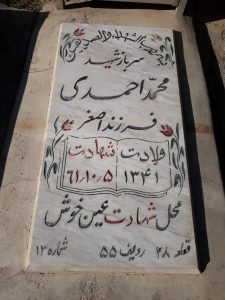 سرباز شهید
محمد احمدی
فرزند اصغر
ولادت شهادت
۱۳۴۱ ۶۱/۱۰/۵
محل شهادت عین خوش
قطعه ۴۸ ردیف ۵۵ شماره ۱۳